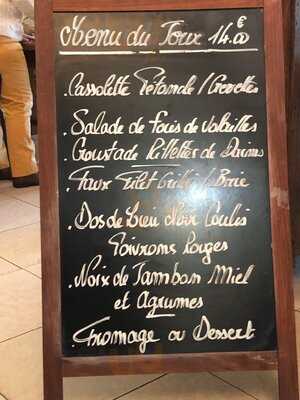 Menu du Jour 14.00€
. Cassolette Pétoncle / Crevettes
. Salade de Foies de Volailles
. Croustade Rillettes de Daims
. Faux Filet Grillé / Brie
. Dos de Lieu Noir Coulis
Poivrons Rouges
. Noix de Jambon Miel
et Agrumes
. Fromage ou Dessert